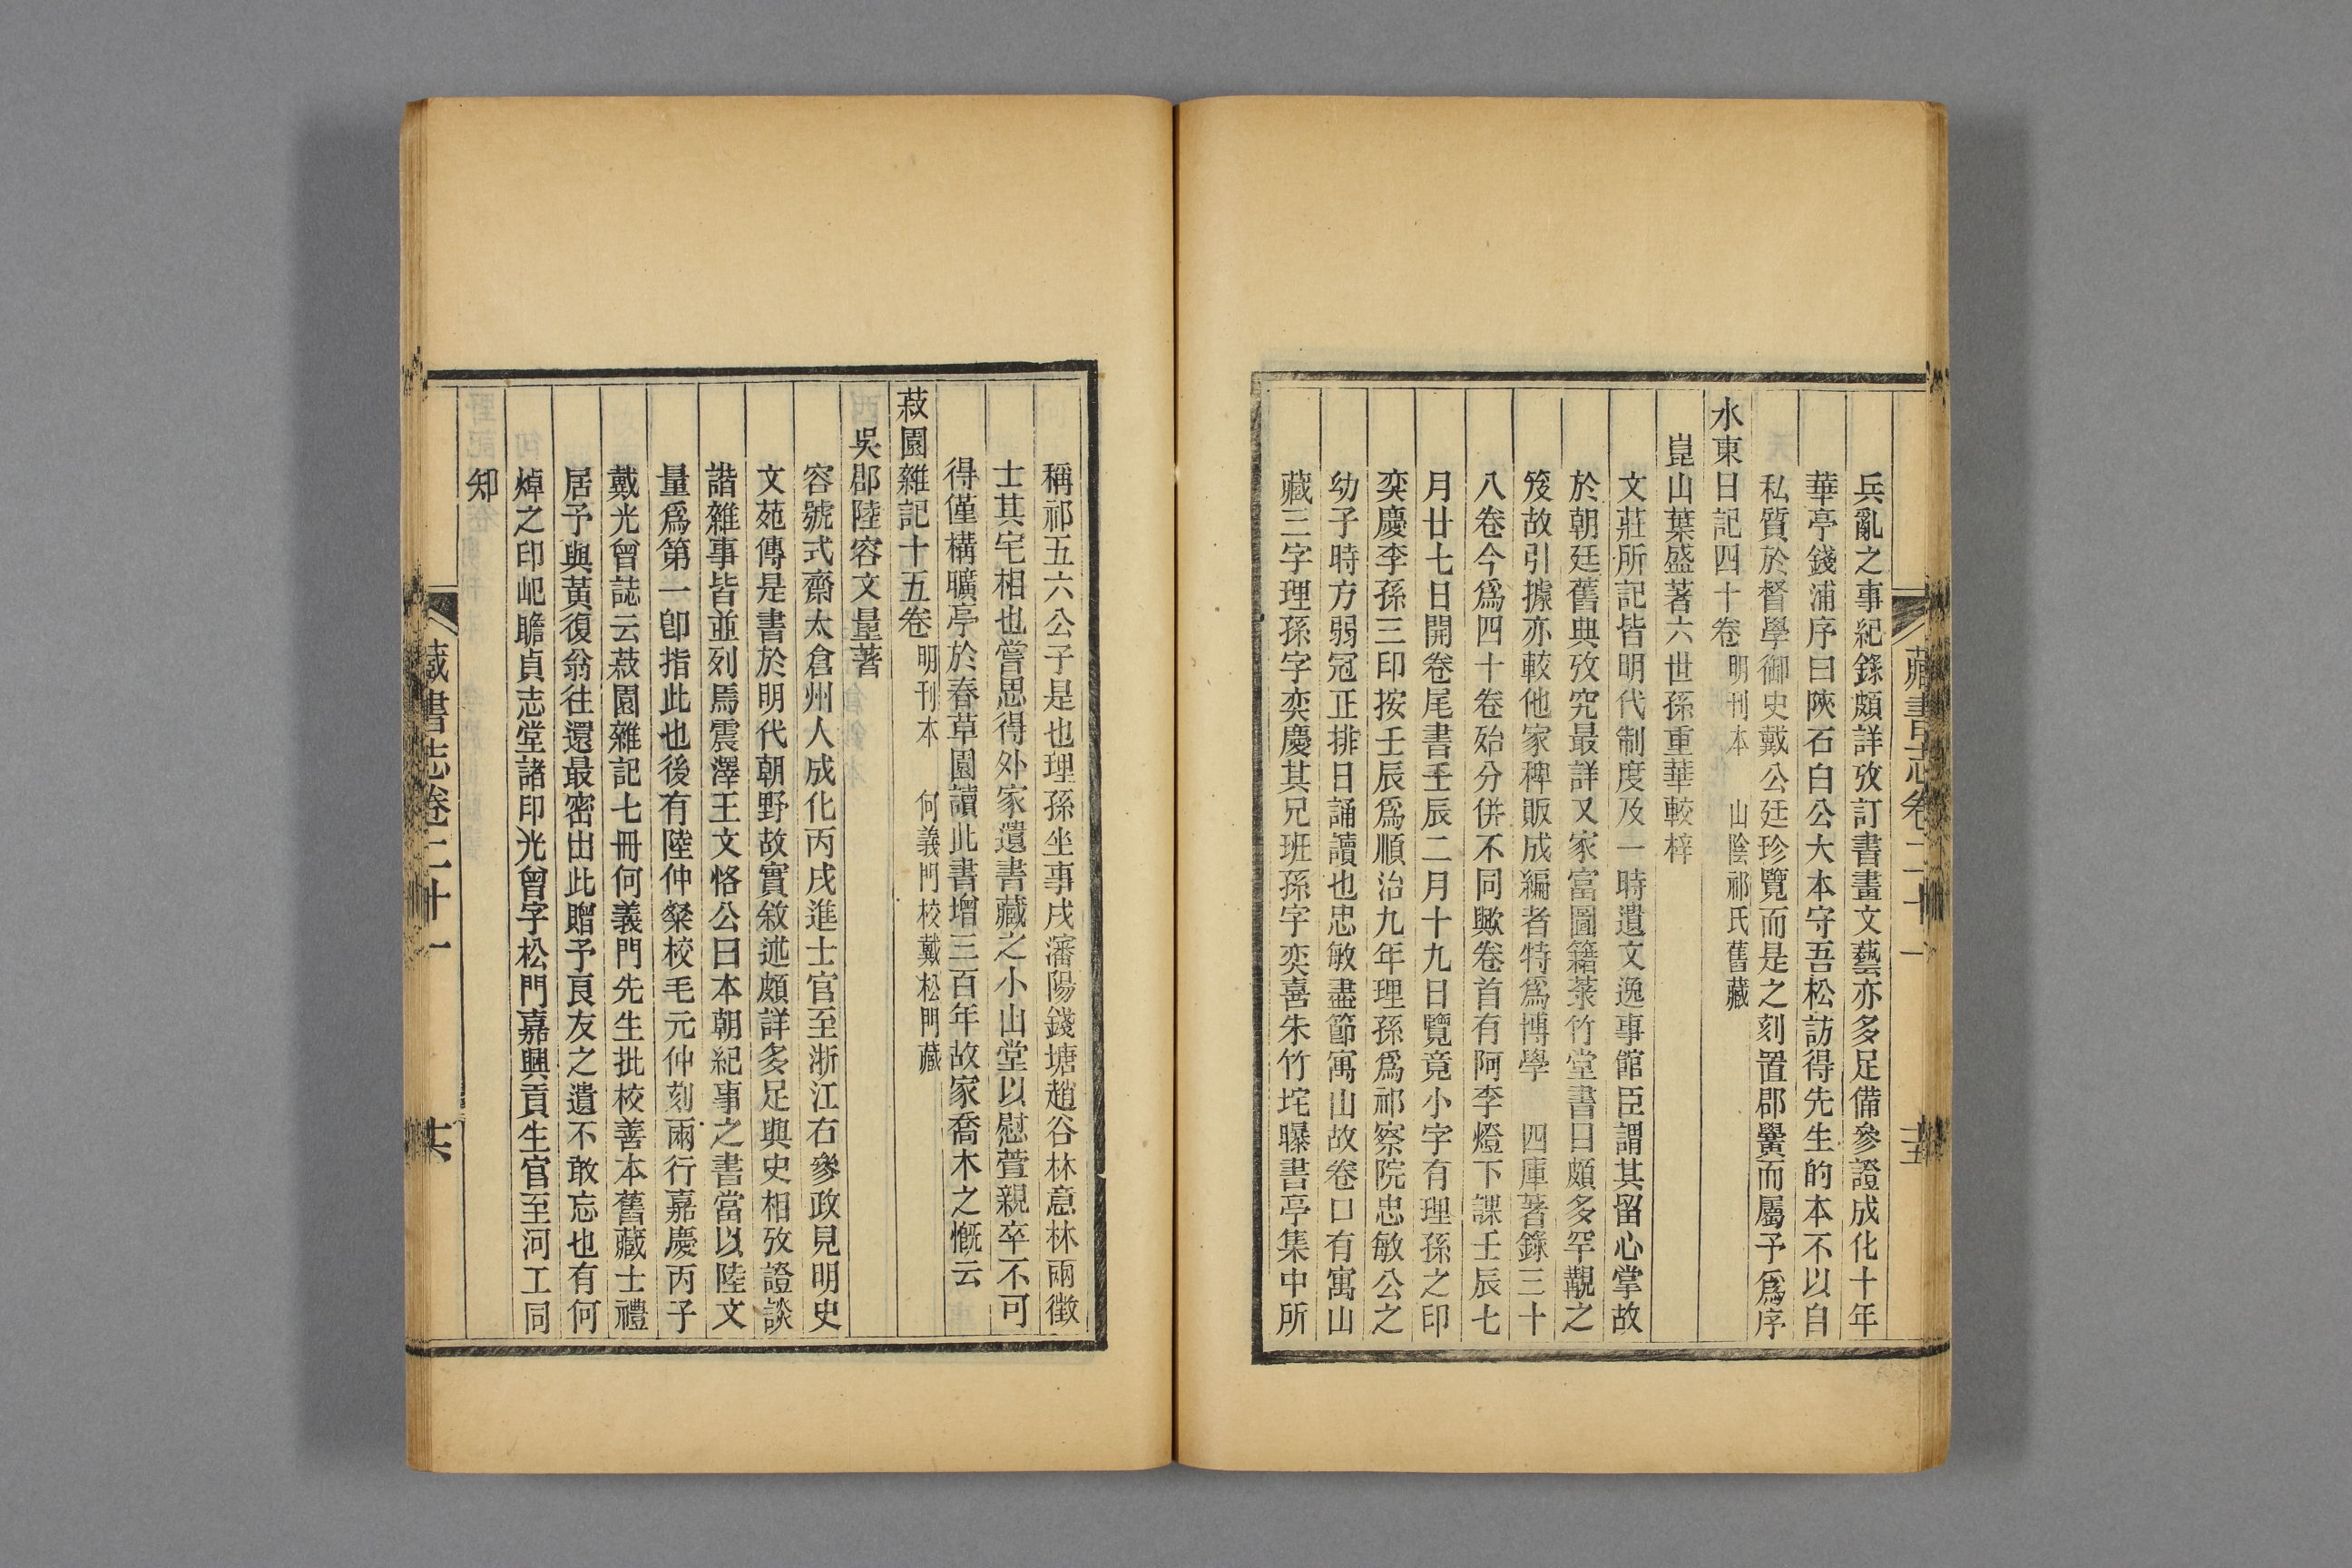 藏書志卷二十一
十五
兵亂之事紀錄頗詳攷訂書畫文藝亦多足備參證成化十年
華亭錢浦序曰陝石白公大本守吾松訪得先生的本不以自
私質於督學御史戴公廷珍覽而是之刻置郡黌而屬予爲序
水東日記四十卷 明刊本 山陰祁氏舊藏
崑山葉盛著六世孫重華較梓
文莊所記皆明代制度及一時遺文逸事館臣謂其留心掌故
於朝廷舊典攷究最詳又家富圖籍菉竹堂書目頗多罕覯之
笈故引據亦較他家稗販成編者特爲博學 四庫著錄三十
八卷今爲四十卷殆分併不同歟卷首有阿李燈下課壬辰七
月廿七日開卷尾書壬辰二月十九日覽竟小字有理孫之印
奕慶李孫三印按壬辰爲順治九年理孫爲祁察院忠敏公之
幼子時方弱冠正排日誦讀也忠敏盡節寓山故卷口有寓山
藏三字理孫字奕慶其兄班孫字奕喜朱竹垞曝書亭集中所
稱祁五六公子是也理孫坐事戍瀋陽錢塘趙谷林意林兩徵
士其宅相也嘗思得外家遺書藏之小山堂以慰萱親卒不可
得僅構曠亭於春草園讀此書增三百年故家喬木之慨云
菽園雜記十五卷 明刊本 何義門校戴松門藏
吳郡陸容文量著
容號式齋太倉州人成化丙戌進士官至浙江右參政見明史
文苑傳是書於明代朝野故實敘述頗詳多足與史相攷證談
諧雜事皆並列焉震澤王文恪公曰本朝紀事之書當以陸文
量爲第一卽指此也後有陸仲粲校毛元仲刻兩行嘉慶丙子
戴光曾誌云菽園雜記七冊何義門先生批校善本舊藏士禮
居予與黃復翁往還最密出此贈予良友之遺不敢忘也有何
焯之印屺瞻貞志堂諸印光曾字松門嘉興貢生官至河工同
知
藏書志卷二十一
十六